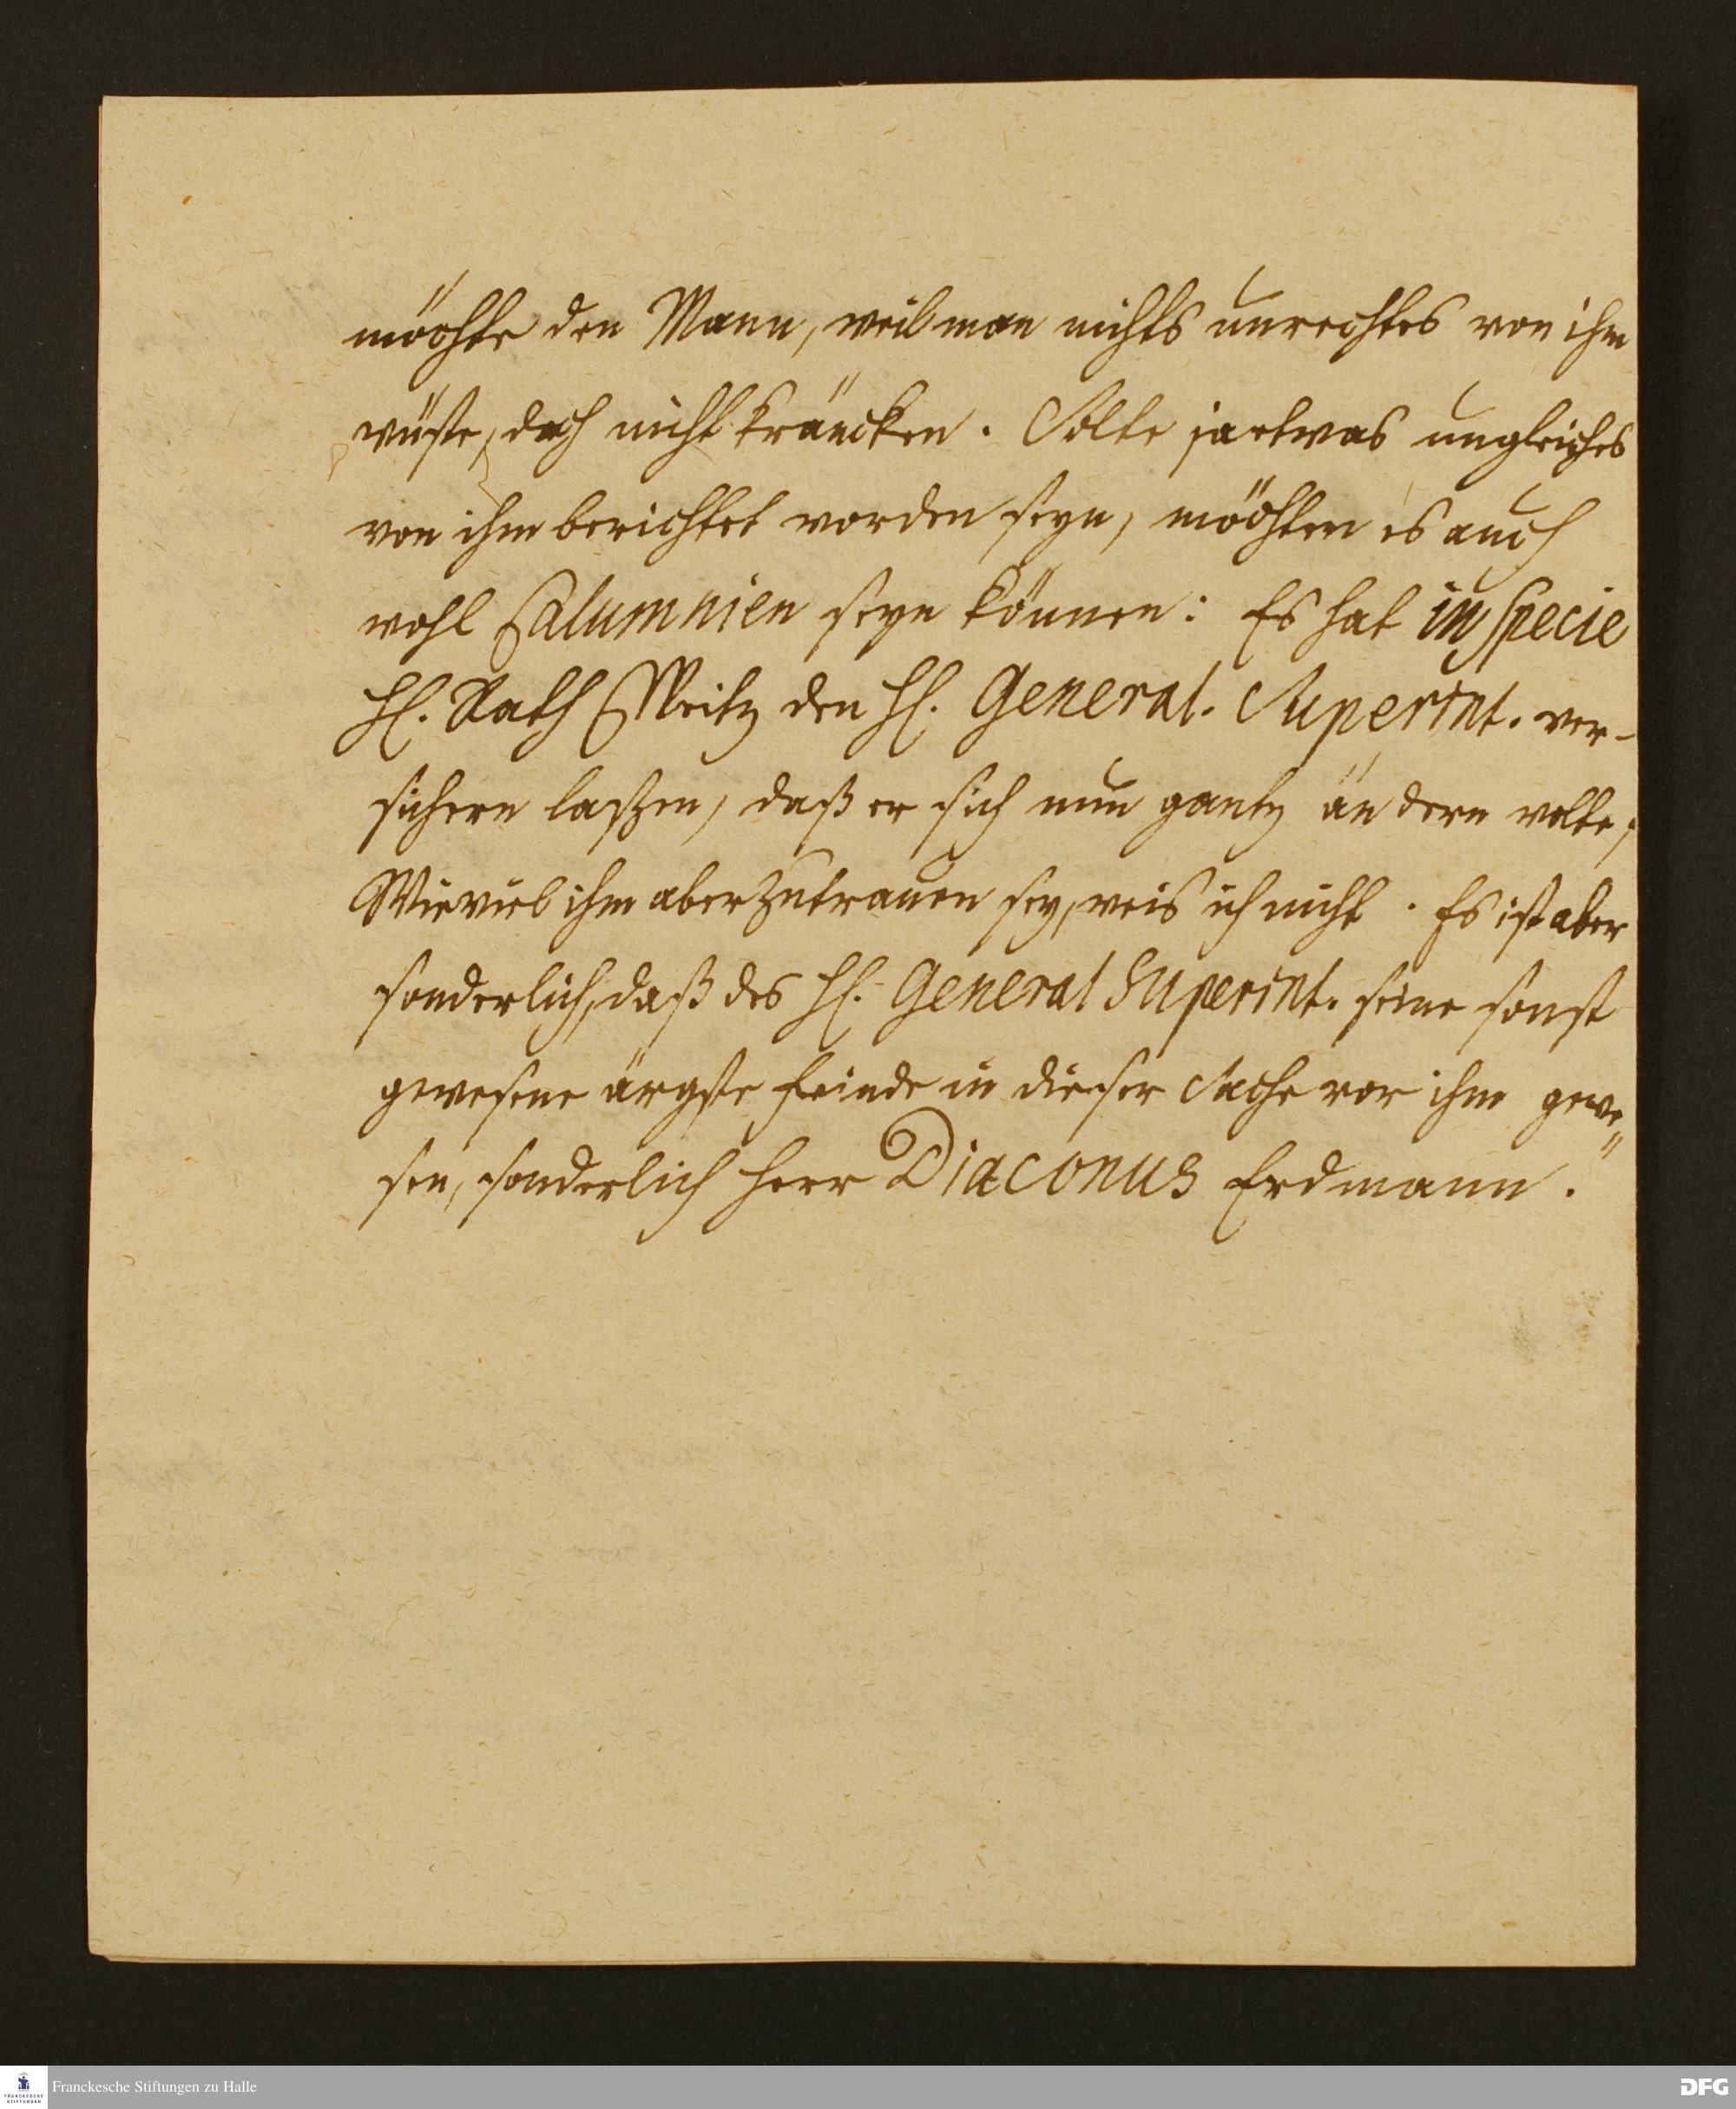 möchte den Mann, weil man nichts unrechtes von ihm
wüste, doch nicht kräncken. Solte ja etwas ungleiches
von ihm berichtet worden seyn, möchten es auch
wohl Calumnien seyn können: Es hat in specie
H. Rath Weitz den H. General. Superint. ver-
sichern laßen, daß er sich nun gantz ändern wolte,
Wie viel ihm aber zutrauen sey, weis ich nicht. Es ist aber
sonderlich, daß des H. General Superint. seine sonst
gewesene ärgste Feinde in dieser Sache vor ihm gewe-
sen, sonderlich Herr Diaconus Erdmann.
Franckesche Stiftungen zu Halle
FRANCKESCHE
STIFTUNGEN
DFG